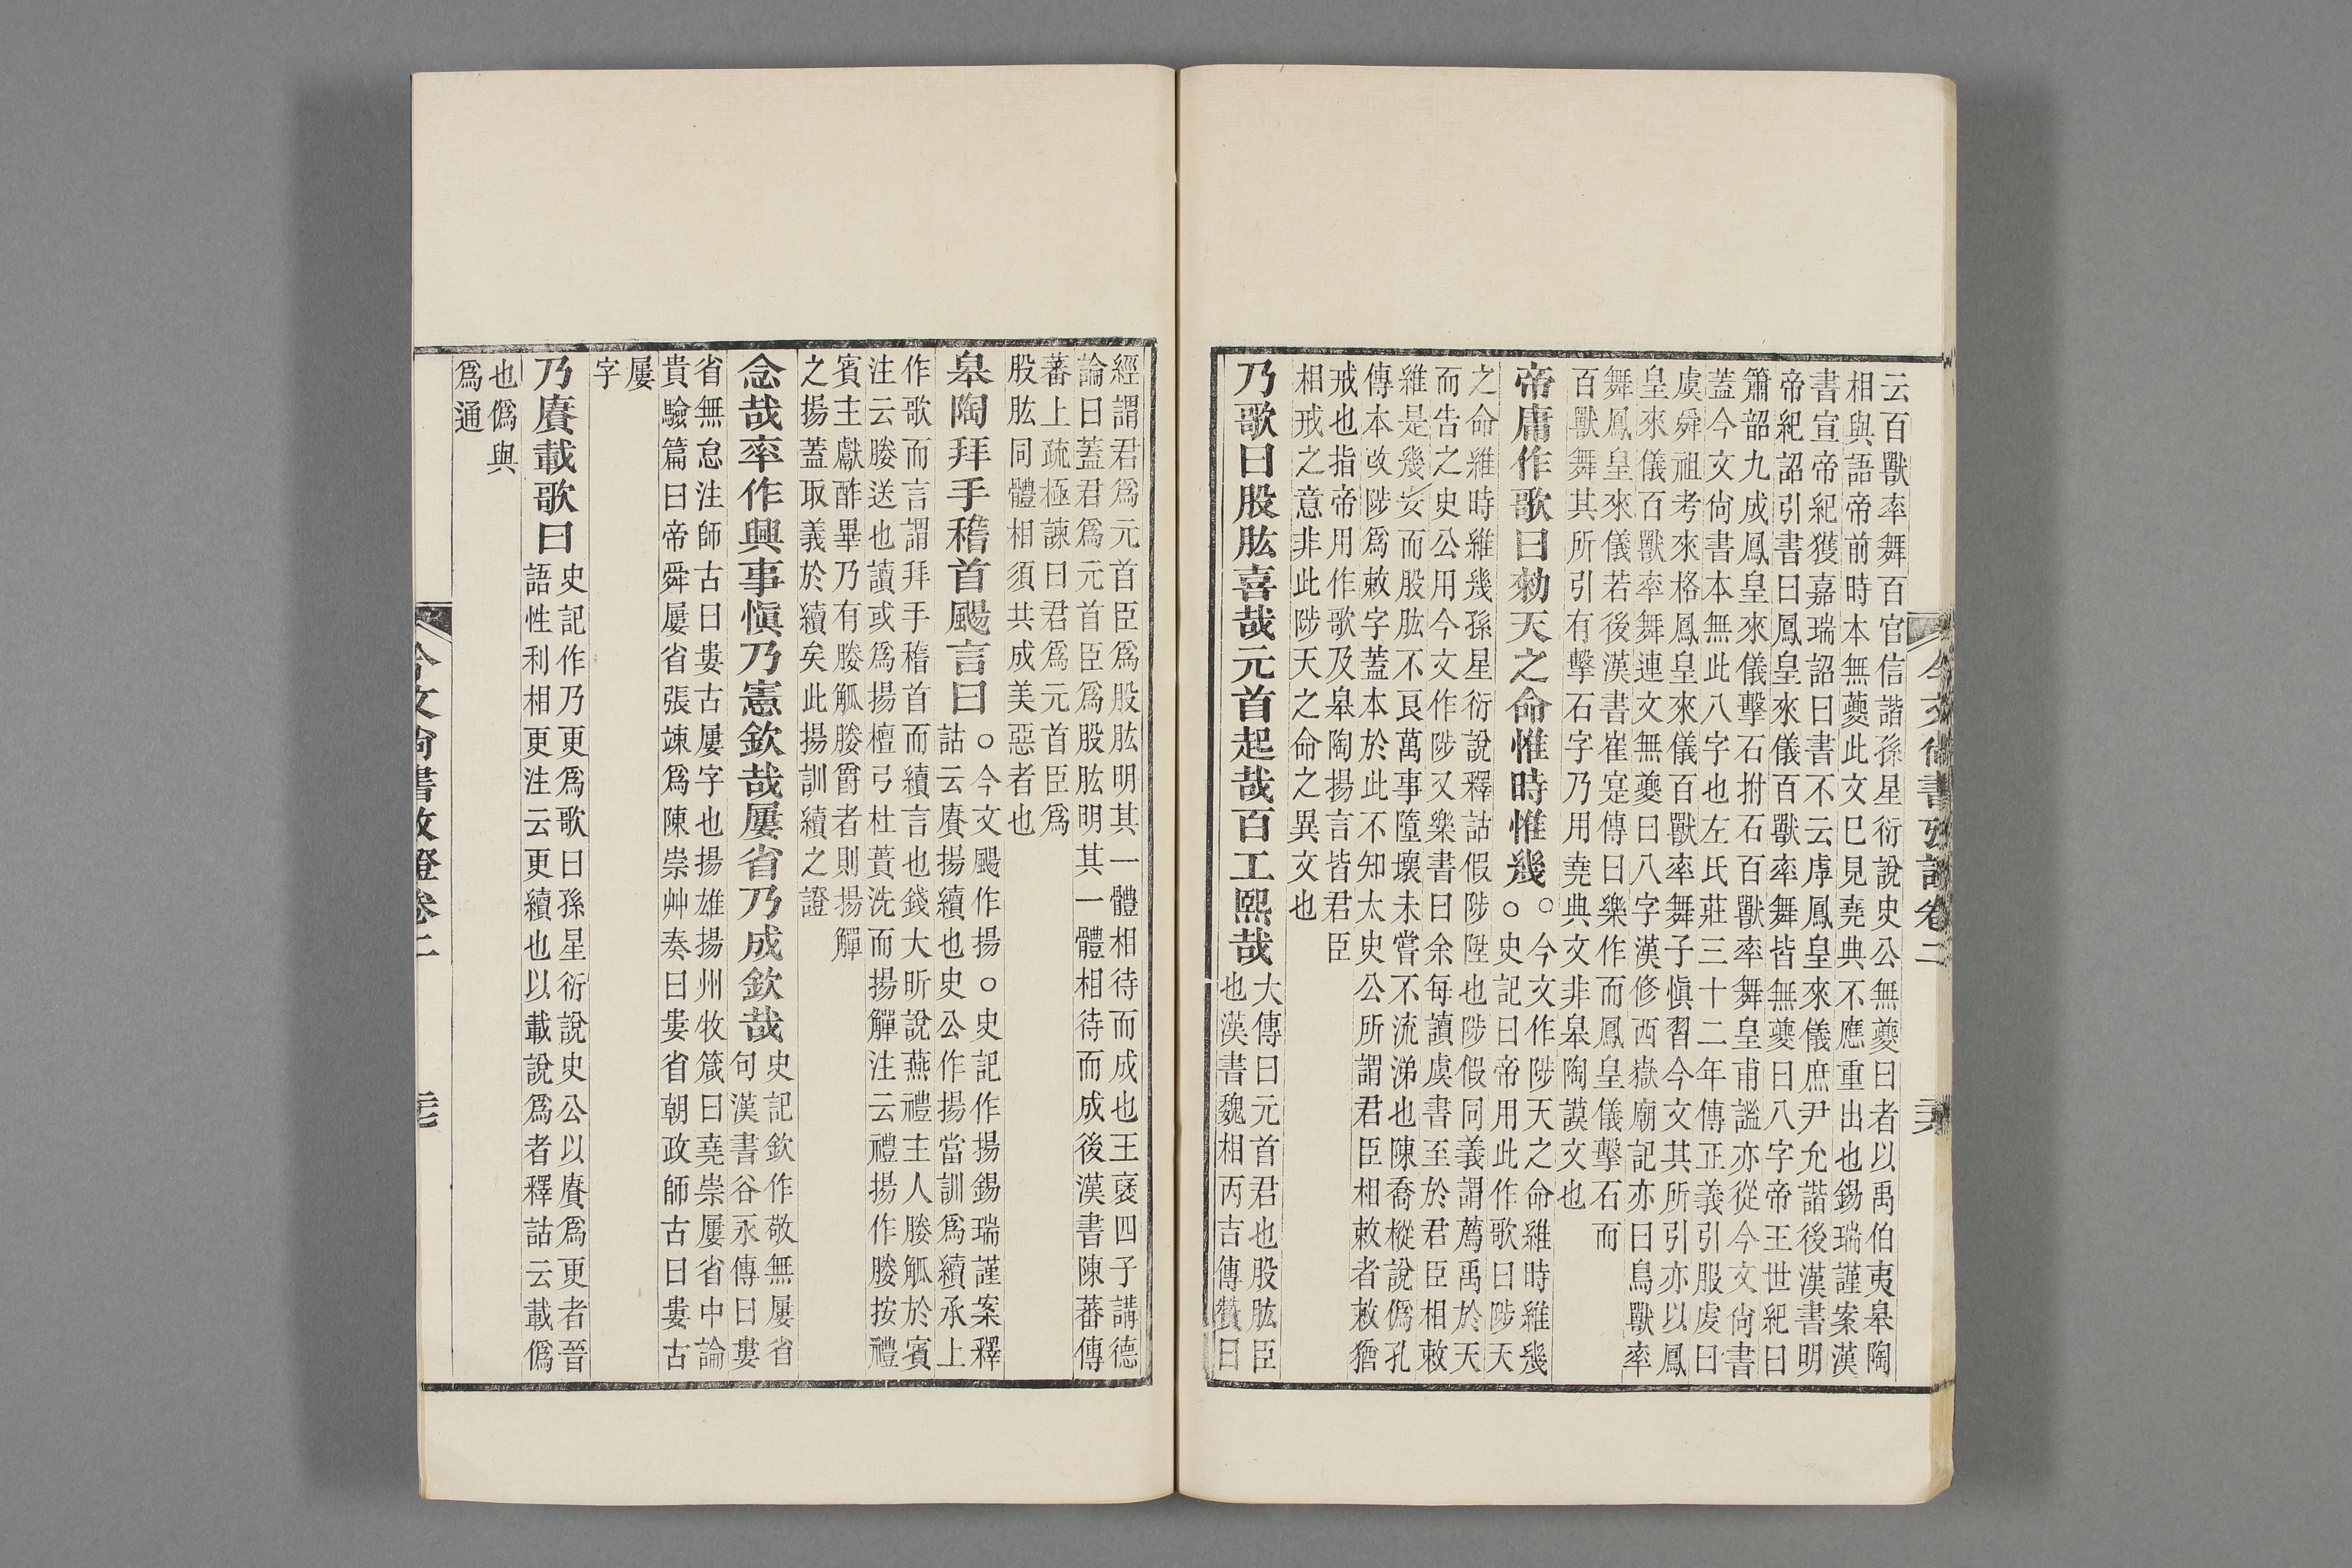 今文尚書攷證卷二
云百獸率舞百官信諧孫星衍說史公無夔曰者以禹伯夷皋陶
相與語帝前時本無夔此文已見堯典不應重出也錫瑞謹案漢
書宣帝紀獲嘉瑞詔曰書不云虖鳳皇來儀庶尹允諧後漢書明
帝紀詔引書曰鳳皇來儀百獸率舞皆無夔曰八字帝王世紀曰
簫韶九成鳳皇來儀擊石拊石百獸率舞皇甫謐亦從今文尙書
蓋今文尙書本無此八字也左氏莊三十二年傳正義引服虔曰
虞舜祖考來格鳳皇來儀百獸率舞子愼習今文其所引亦以鳳
皇來儀百獸率舞連文無夔曰八字漢修西嶽廟記亦曰鳥獸率
舞鳳皇來儀若後漢書崔寔傳曰樂作而鳳皇儀擊石而
百獸舞其所引有擊石字乃用堯典文非皋陶謨文也
帝庸作歌曰勑天之命惟時惟幾
○今文作陟天之命維時維幾
○史記曰帝用此作歌曰陟天
之命維時維幾孫星衍說釋詁假陟陞也陟假同義謂薦禹於天
而告之史公用今文作陟又樂書曰余每讀虞書至於君臣相敕
維是幾安而股肱不良萬事墮壞未嘗不流涕也陳喬樅說僞孔
傳本改陟爲敕字蓋本於此不知太史公所謂君臣相敕者敕猶
戒也指帝用作歌及皋陶揚言皆君臣
相戒之意非此陟天之命之異文也
乃歌曰股肱喜哉元首起哉百工熙哉
大傳曰元首君也股肱臣
也漢書魏相丙吉傳贊曰
經謂君爲元首臣爲股肱明其一體相待而成也王襃四子講德
論曰蓋君爲元首臣爲股肱明其一體相待而成後漢書陳蕃傳
蕃上疏極諫曰君爲元首臣爲
股肱同體相須共成美惡者也
皋陶拜手稽首颺言曰
○今文颺作揚○史記作揚錫瑞謹案釋
詁云賡揚續也史公作揚當訓爲續承上
作歌而言謂拜手稽首而續言也錢大昕說燕禮主人媵觚於賓
注云媵送也讀或爲揚檀弓杜蕢洗而揚觶注云禮揚作媵按禮
賓主獻酢畢乃有媵觚媵爵者則揚觶
之揚蓋取義於續矣此揚訓續之證
念哉率作興事愼乃憲欽哉屢省乃成欽哉
史記欽作敬無屢省
句漢書谷永傳曰婁
省無怠注師古曰婁古屢字也揚雄揚州牧箴曰堯崇屢省中論
貴驗篇曰帝舜屢省張竦爲陳崇艸奏曰婁省朝政師古曰婁古
屢
字
乃賡載歌曰
史記作乃更爲歌曰孫星衍說史公以賡爲更者晉
語性利相更注云更續也以載說爲者釋詁云載僞
也僞與
爲通
今文尚書攷證卷二